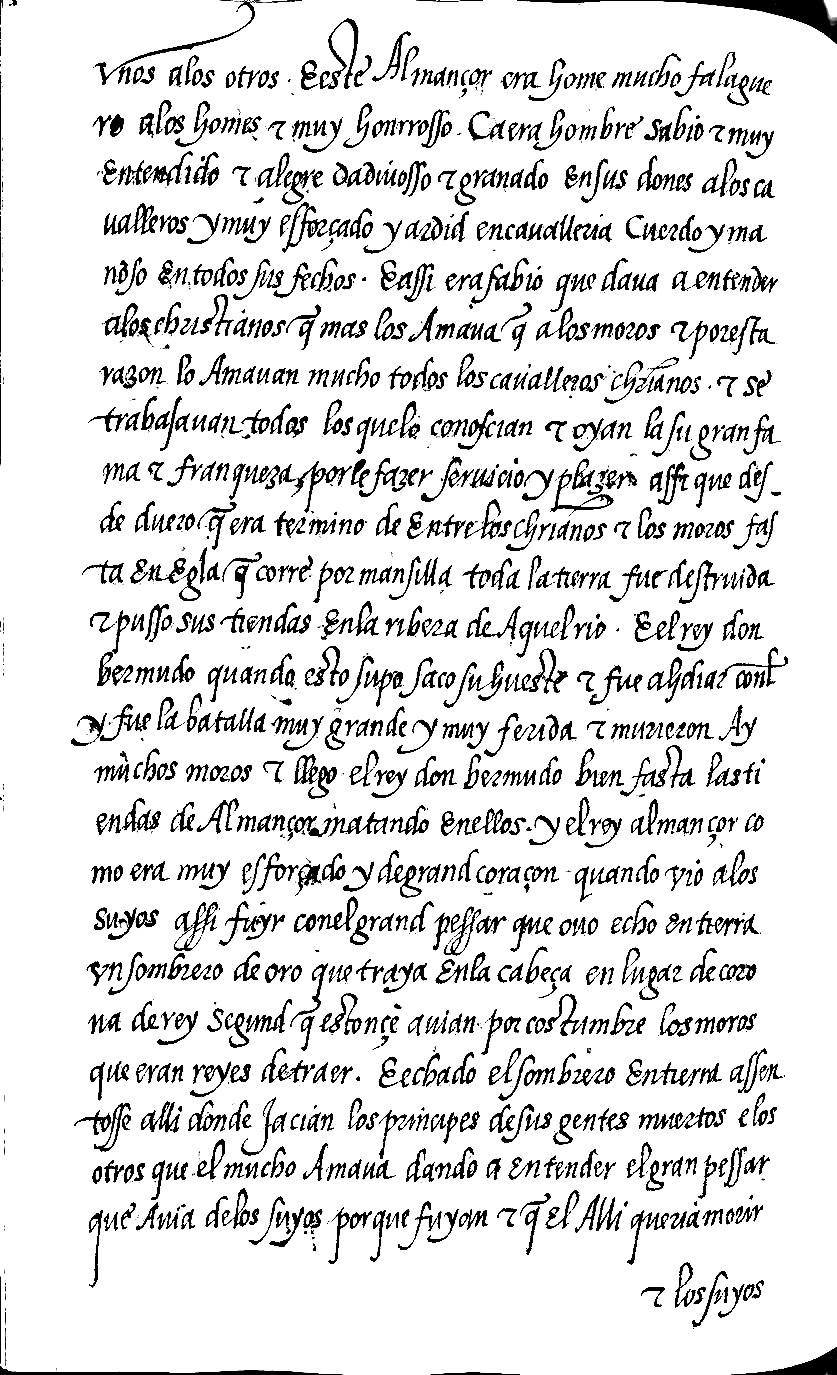 vnos alos otros. E este Almançor era home mucho falague
ro alos homes & muy honrrosso. Ca era hombre sabio & muy
entendido & alegre dadiuosso & granado en sus dones alos ca
ualleros y muy esforçado y ardid en caualleria Cuerdo y ma
ñoso en todos sus fechos. E assi era sabio que daua a entender
alos christianos q̃ mas los Amaua q̃ a los moros & por esta
razon lo Amauan mucho todos los caualleros chr̃ianos. & se
trabajauan todos los que lo conoscian & oyan la su gran fa
ma & franqueza, por le fazer seruicio y plazer assi que des_
de duero q̃ era termino de entre los chr̃ianos & los moros fas
ta en Egla q̃ corre por mansilla toda la tierra fue destruida
& pusso sus tiendas en la ribera de Aquel rio. E el rey don
bermudo quando esto supo saco su hueste & fue a lidiar con l
y fue la batalla muy grande y muy ferida & murieron Ay
muchos moros & llego el rey don bermudo bien fasta las ti
endas de Almançor matando en ellos. y el rey almançor co
mo era muy esforçado y de grand coraçon quando vio alos
suyos assi fuyr con el grand pessar que ouo echo en tierra
vn sombrero de oro que traya en la cabeça en lugar de coro
na de rey Segund q̃ estonçe auian por costumbre los moros
que eran reyes de traer. E echado el sombrero en tierra assen
tosse alli donde Jacian los principes de sus gentes muertos e los
otros que el mucho Amaua dando a entender el gran pessar
que Auia de los suyos porque fuyan & q̃ El Alli queria morir
& los suyos